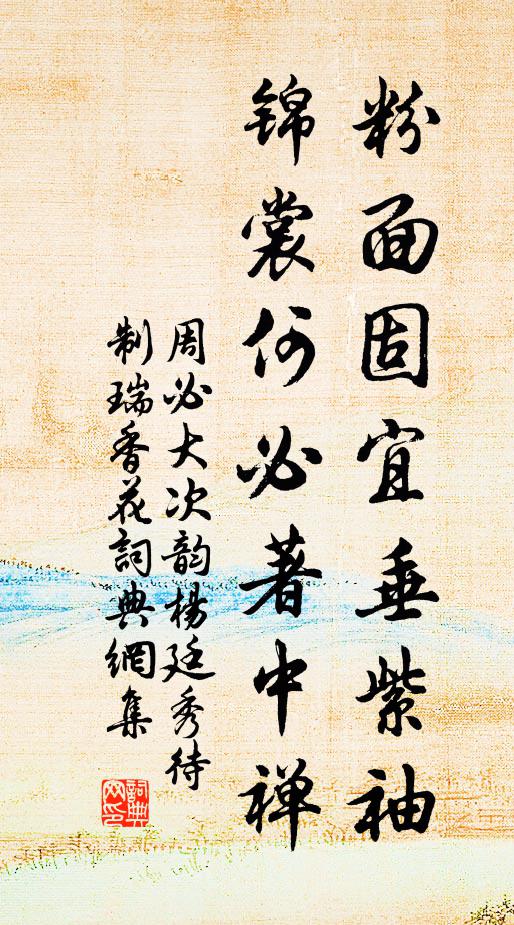 粉面固宜垂紫袖
锦裳何必著中禅
周必大次韵楊廷秀待
制瑞香花詞典網集
詞典网印